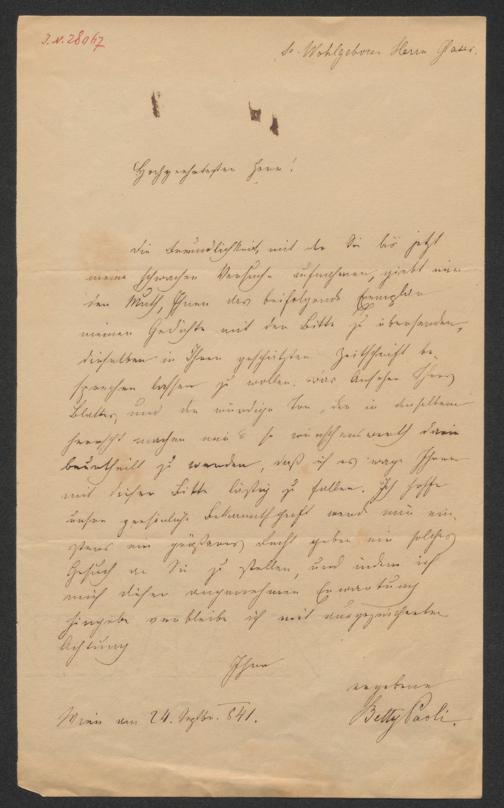 J.N. 28067
Sr. Wohlgeboren Herrn
Hochgeehrtester Herr!
Die Freundlichkeit, mit der Sie bis jetzt
meine schwachen Versuche aufnahmen, giebt mir
den Muth, Ihnen das beifolgende Exemplar
meiner Gedichte mit der Bitte zu übersenden,
dieselben in Ihrer geschätzten Zeitschrift be-
sprechen lassen zu wollen. Das Ansehen Ihres
Blattes, und der würdige Ton, der in demselben
herrscht machen mir es so wünschenswerth darin
beurtheilt zu werden, daß ich es wage Ihnen
mit dieser Bitte lästig zu fallen. Ich hoffe
unsre persönliche Bekanntschaft wird mir ein-
stens ein größeres Recht geben ein solches
Gesuch an Sie zu stellen, und indem ich
mich dieser angenehmen Erwartung
hingebe verbleibe ich mit ausgezeichneter
Achtung
Ihre
ergebene
Wien am 24. Septbr. 841. Betty Paoli.